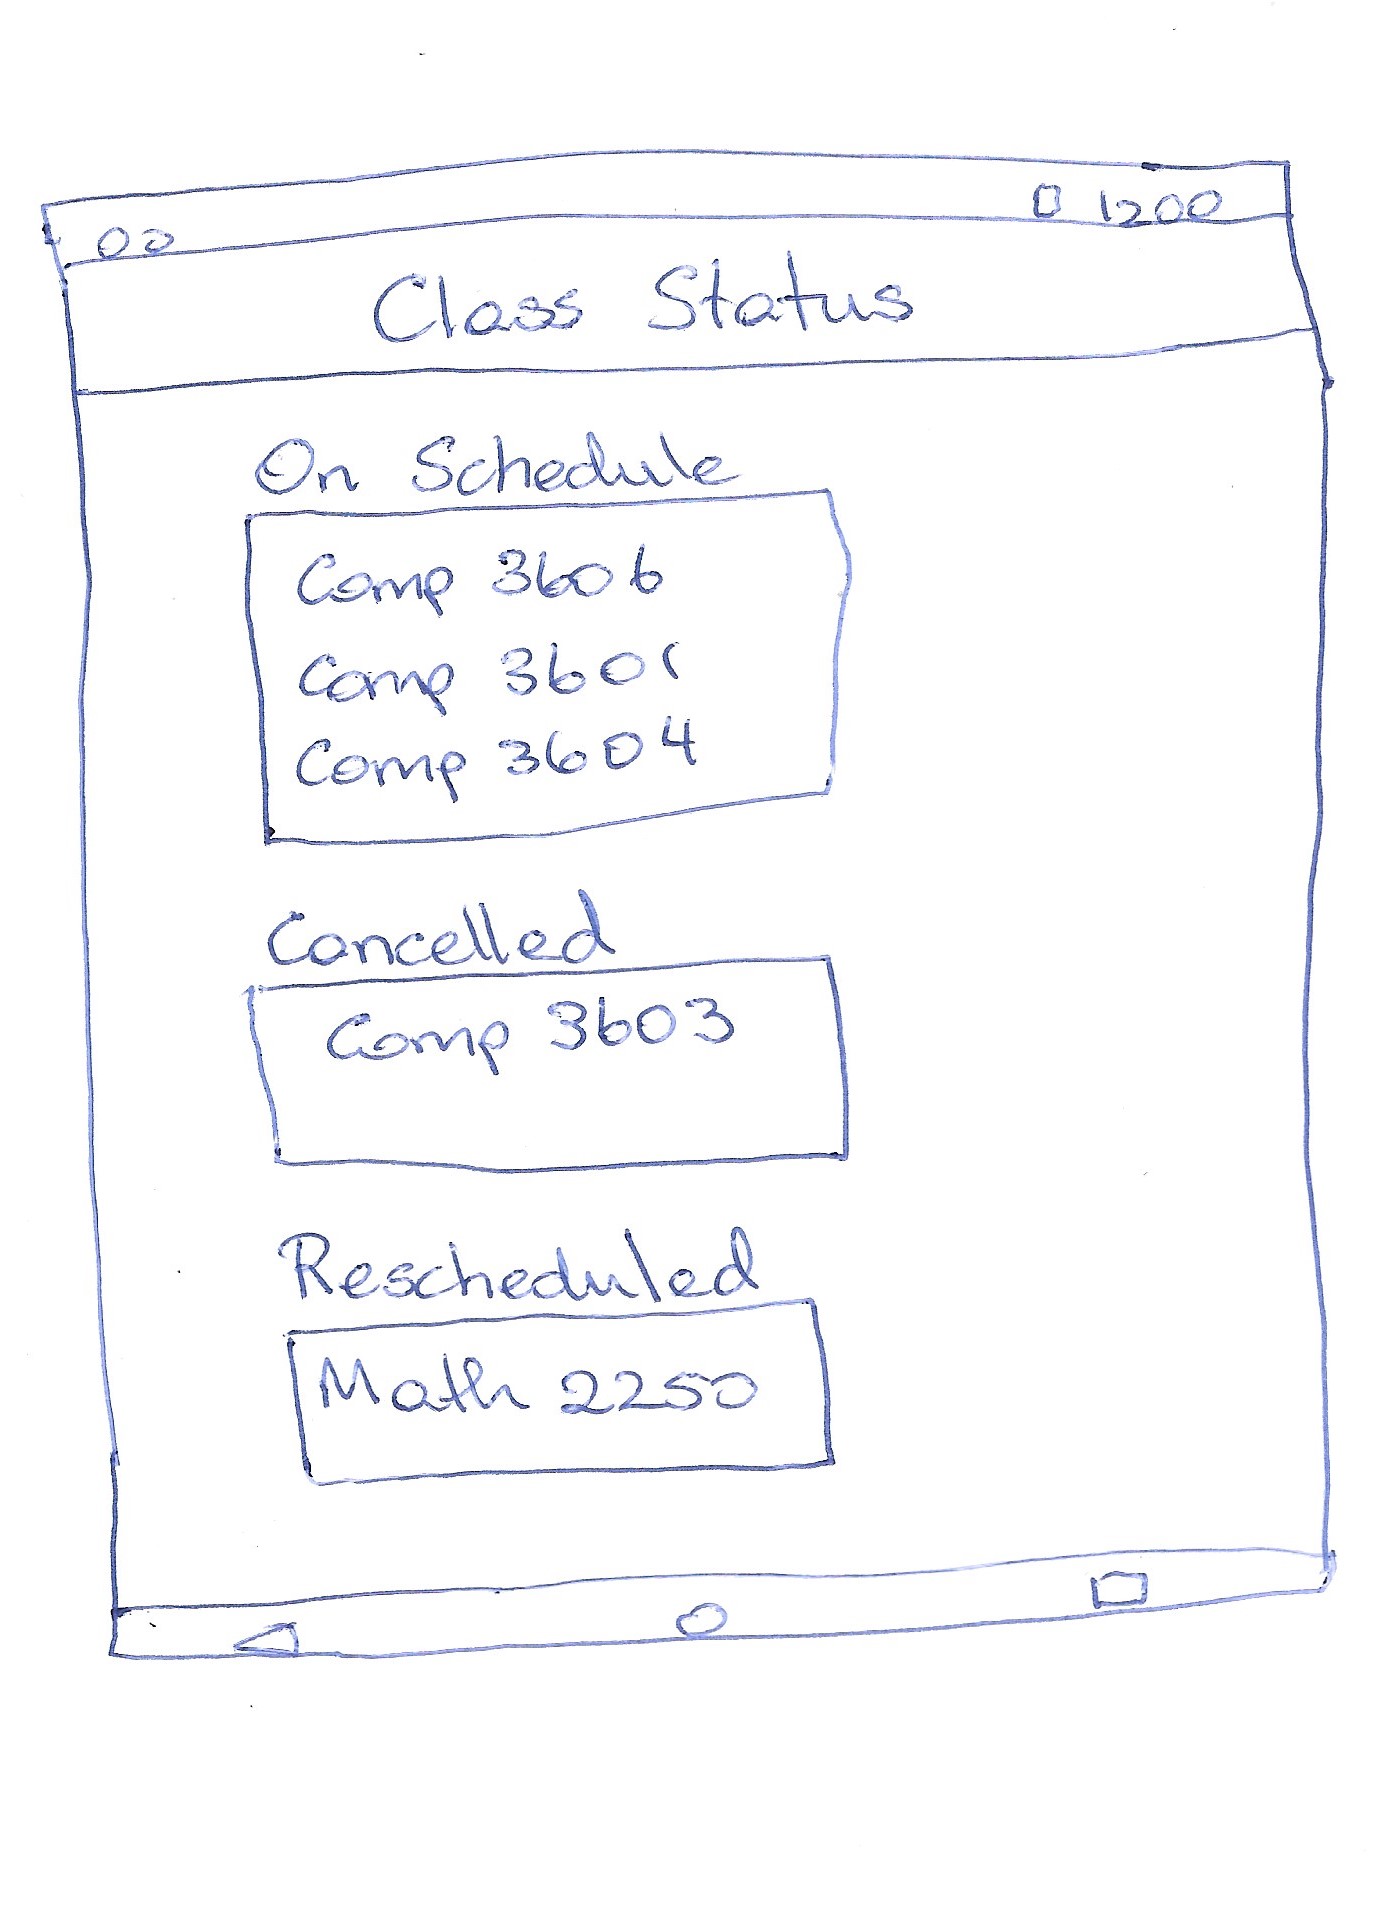 00 1200
Class Status
On Schedule
Comp 3606
Comp 3601
Comp 3604
Cancelled
Comp 3603
Rescheduled
Math 2250